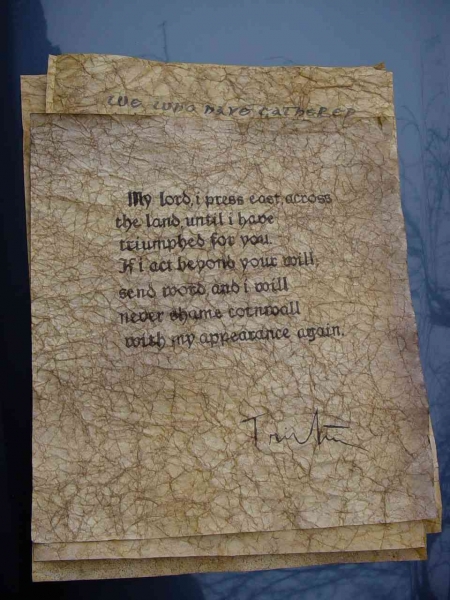 We who have gathered
My lord, i press east, across
the land, until i have
triumphed for you.
If i act beyond your will,
send word, and i will
never shame cornwall
with my appearance again.
Tristan